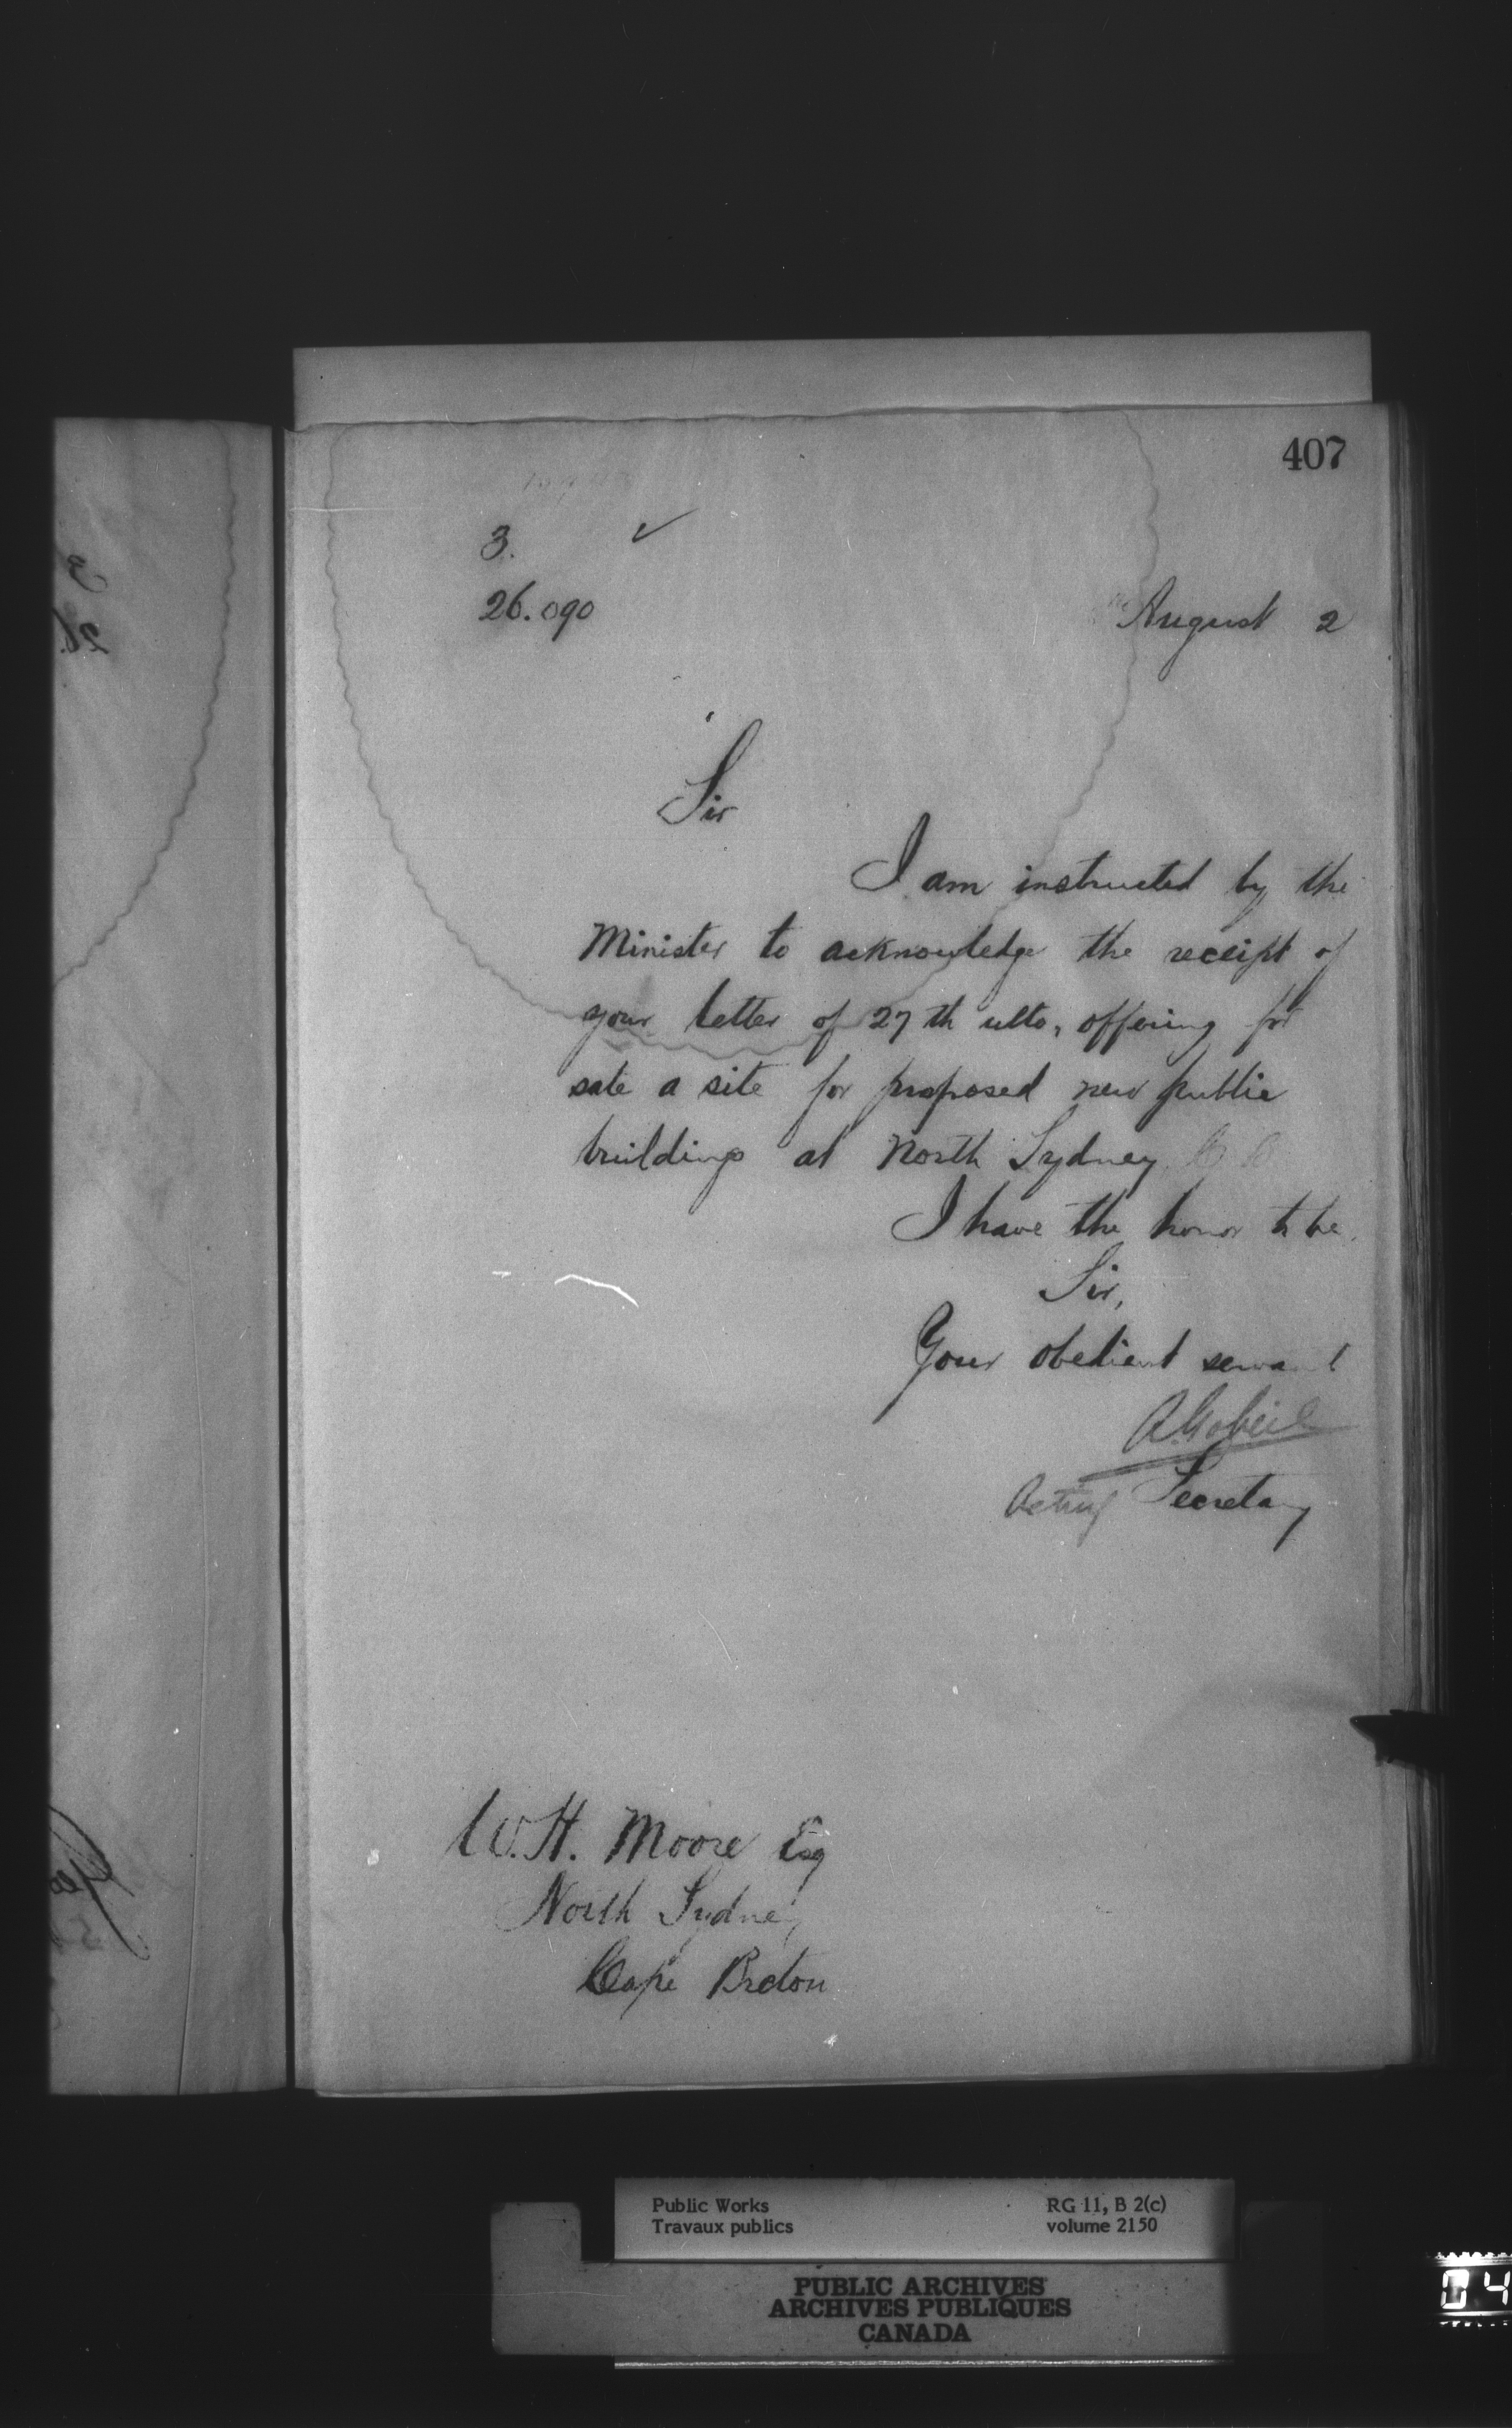 407
3. ✓
26.090
August 2
Sir
I am instructed by the
Minister to acknowledge the receipt of
your letter of 27th ulto, offering for
sale a site for proposed new public
buildings at North Sydney C B
I have the honor to be,
Sir,
Your obedient servant
A Gobeil
Acting Secretary
W.H. Moore Esq
North Sydney
Cape Breton
Public Works
Travaux publics
RG 11, B 2(c)
volume 2150
PUBLIC ARCHIVES
ARCHIVES PUBLIQUES
CANADA
04